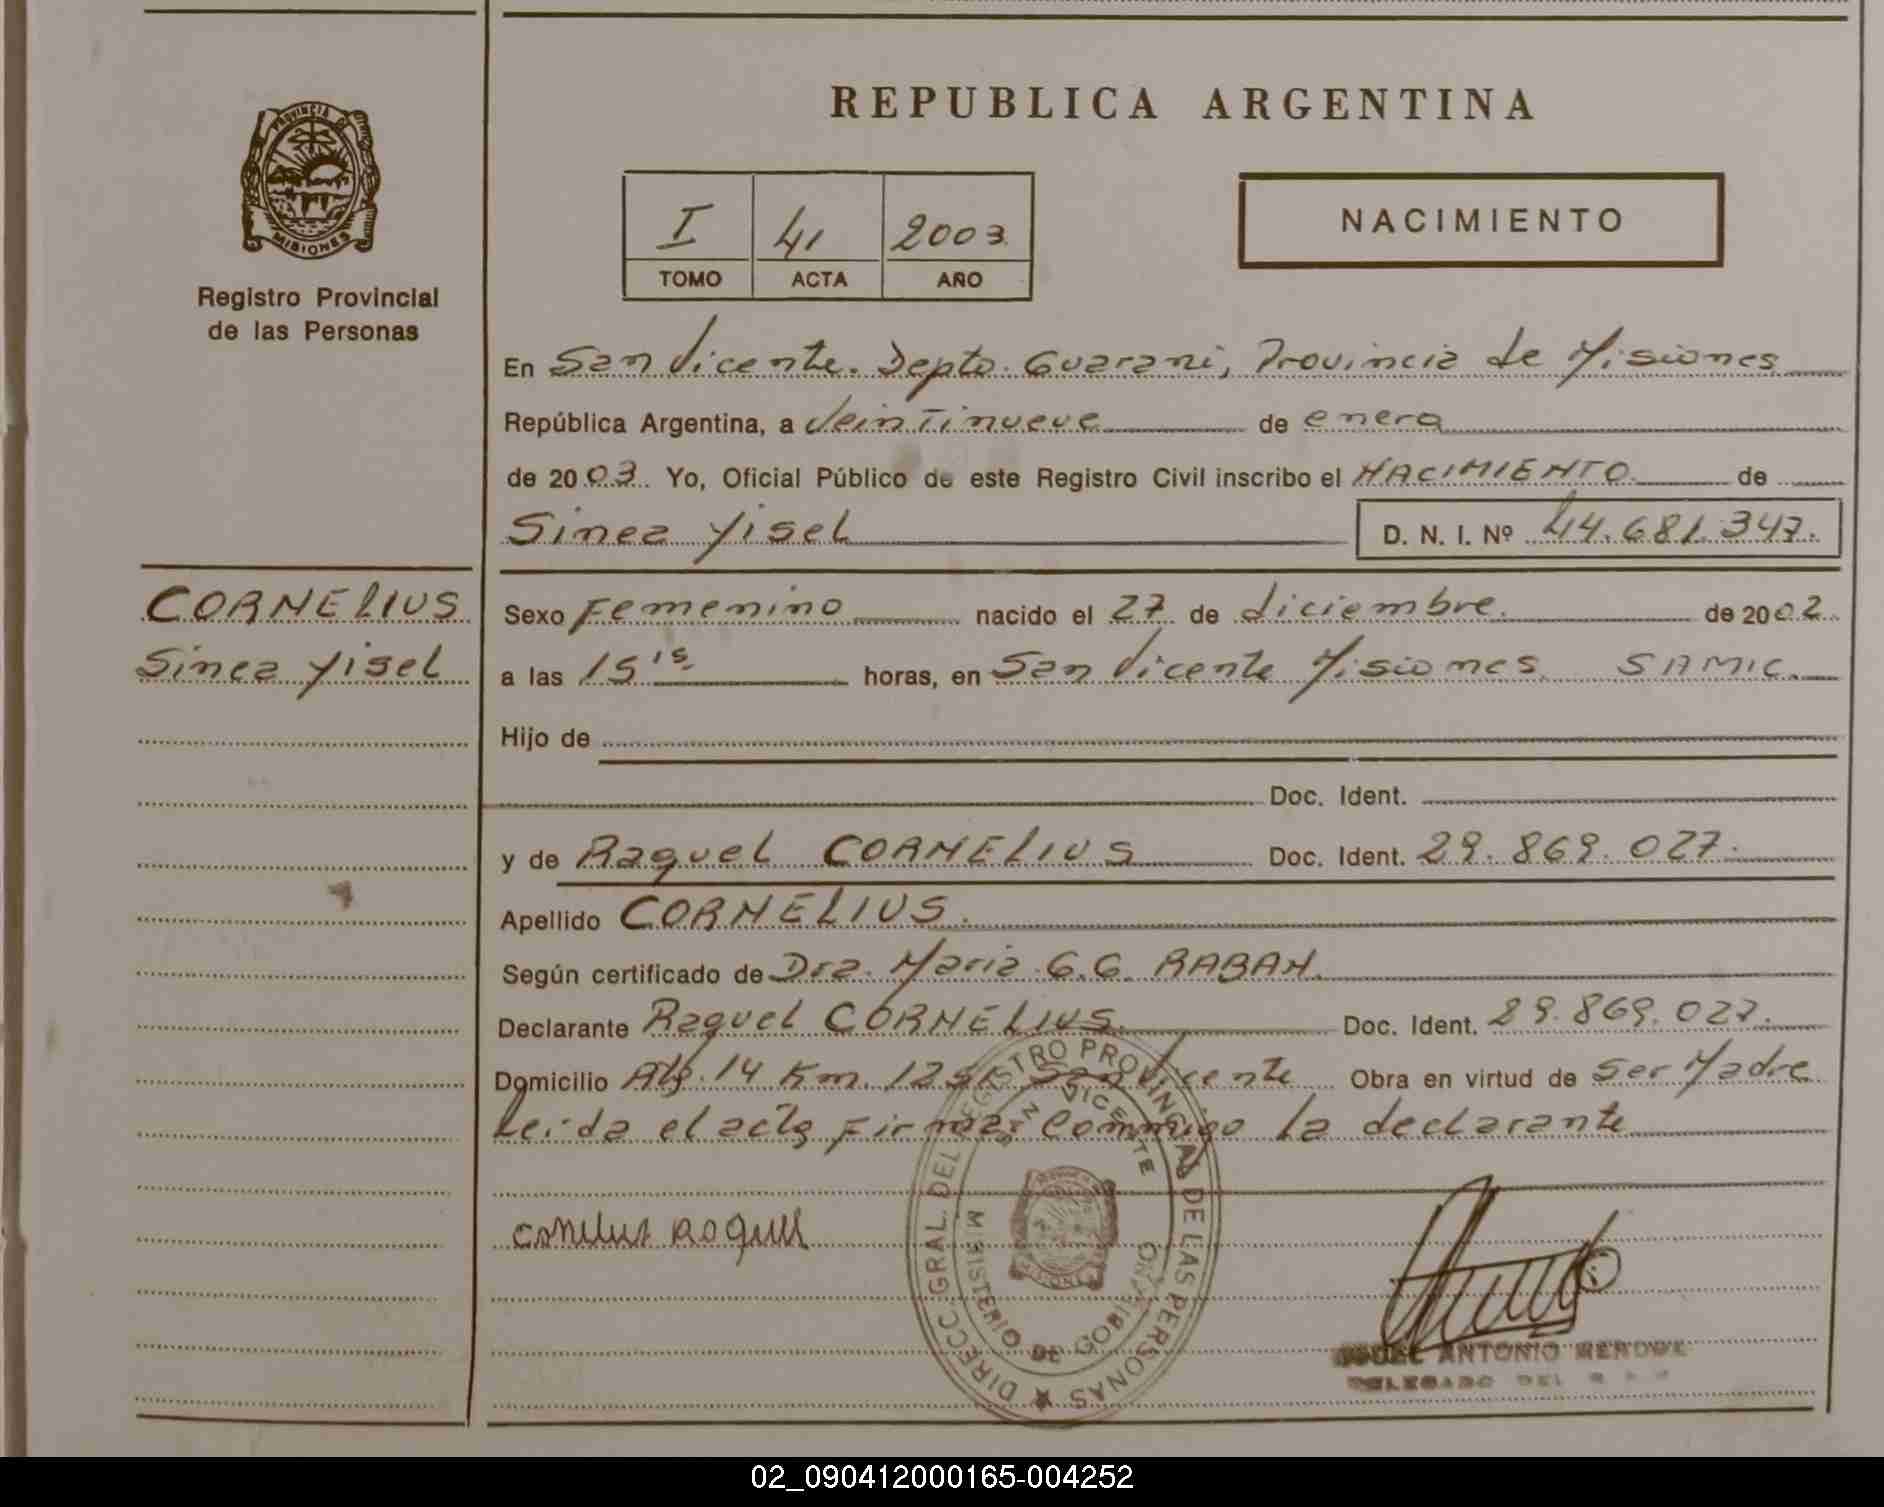 REPUBLICA ARGENTINA
PROVINCIA DE
MISIONES
Registro Provincial
de las Personas
I 41 2003
TOMO ACTA AÑO
NACIMIENTO
En San Vicente. Depto. Guarani, Provincia de Misiones
República Argentina, a Veintinueve de enero
de 2003. Yo, Oficial Público de este Registro Civil inscribo el NACIMIENTO de
Sinea Yisel D. N. I. Nº 44.681.347.
CORNELIUS
Sinea Yisel
Sexo Femenino nacido el 27 de diciembre. de 2002.
a las 15 15 horas, en San Vicente Misiones SAMIC.
Hijo de
Doc. Ident.
y de Raquel CORNELIUS Doc. Ident. 29.869.027.
Apellido CORNELIUS.
Según certificado de Dra. Maria G.G. RABAN.
Declarante Raquel CORNELIUS. Doc. Ident. 29.869.027.
Domicilio 14 Km. San Vicente Obra en virtud de Ser Madre
Leida el acta Firma Conmigo la declarante
DIRECC. GRAL. DEL REGISTRO PROVINCIAL DE LAS PERSONAS
SAN VICENTE
MINISTERIO DE GOBIERNO
ANTONIO
DELEGADO DEL
02_090412000165-004252